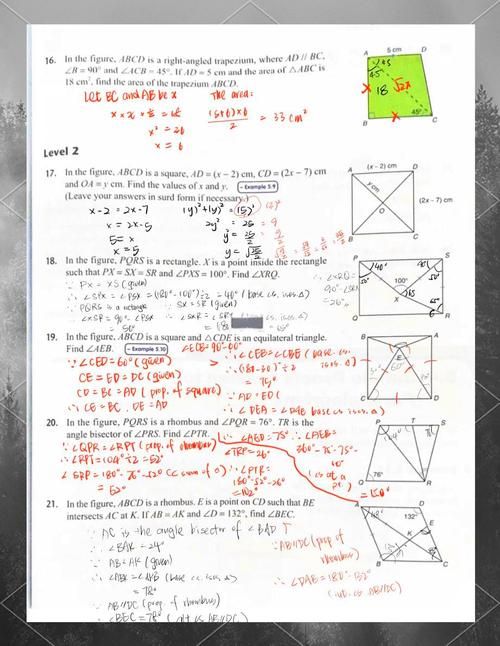 16. In the figure, ABCD is a right-angled trapezium, where AD // BC,
∠B = 90° and ∠ACB = 45°. If AD = 5 cm and the area of △ABC is
18 cm², find the area of the trapezium ABCD.
Let BC and AB be x
The area:
x × x × ½ = 18
x² = 36
x = 6
(5+6)×6 / 2 = 33 cm²
A 5 cm D
45°
18
√2x
x
45°
B x C
Level 2
17. In the figure, ABCD is a square, AD = (x − 2) cm, CD = (2x − 7) cm
and OA = y cm. Find the values of x and y.
(Leave your answers in surd form if necessary.)
Example 5.9
x-2 = 2x-7
5 = x
x = 5
2y² = 25
(x − 2) cm
A D
y cm
O
(2x − 7) cm
B C
18. In the figure, PQRS is a rectangle. X is a point inside the rectangle
such that PX = SX = SR and ∠PXS = 100°. Find ∠XRQ.
∵ PX = XS (given)
∴ ∠SPX = ∠PSX = (180°-100°)÷2 = 40° (base ∠s, isos.△)
PQRS is a rectangle
SX = SR (given)
∠XSR = 90° - ∠PSX
= 50°
P S
40°
100°
X
Q R
19. In the figure, ABCD is a square and △CDE is an equilateral triangle.
Find ∠AEB.
Example 5.10
∠ECB = 90°-60°
∵ ∠CED = 60° (given)
CE = ED = DC (given)
CD = BC = AD (prop. of square)
∴ CE = BC, DE = AD
∴ ∠CEB = ∠CBE (base ∠s, isos.△)
∴ (180°-30°)÷2
= 75°
∴ AD = ED
∴ ∠DEA = ∠DAE (base ∠s, isos.△)
∴ ∠AED = 75°
∴ ∠AEB =
360°-75°-75°-60°
(∠s at a pt.)
= 150°
B A
E
C D
20. In the figure, PQRS is a rhombus and ∠PQR = 76°. TR is the
angle bisector of ∠PRS. Find ∠PTR.
∵ ∠QPR = ∠RPT (prop. of rhombus)
∠RPT = 104° ÷ 2 = 52°
= 52°
∠TRP = 26°
∴ ∠PTR =
180°-52°-26°
= 102°
P T S
76°
Q R
21. In the figure, ABCD is a rhombus. E is a point on CD such that BE
intersects AC at K. If AB = AK and ∠D = 132°, find ∠BEC.
∵ AC is the angle bisector of ∠BAD
∴ ∠BAK = 24°
∵ AB = AK (given)
∴ ∠ABK = ∠AKB (base ∠s, isos.△)
= 78°
∵ AB//DC (prop. of rhombus)
∴ ∠BEC = 78° (alt. ∠s, AB//DC)
∵ AB//DC (prop. of rhombus)
∴ ∠DAB = 180°-132°
(int. ∠s, AB//DC)
A D
132°
E
K
B C